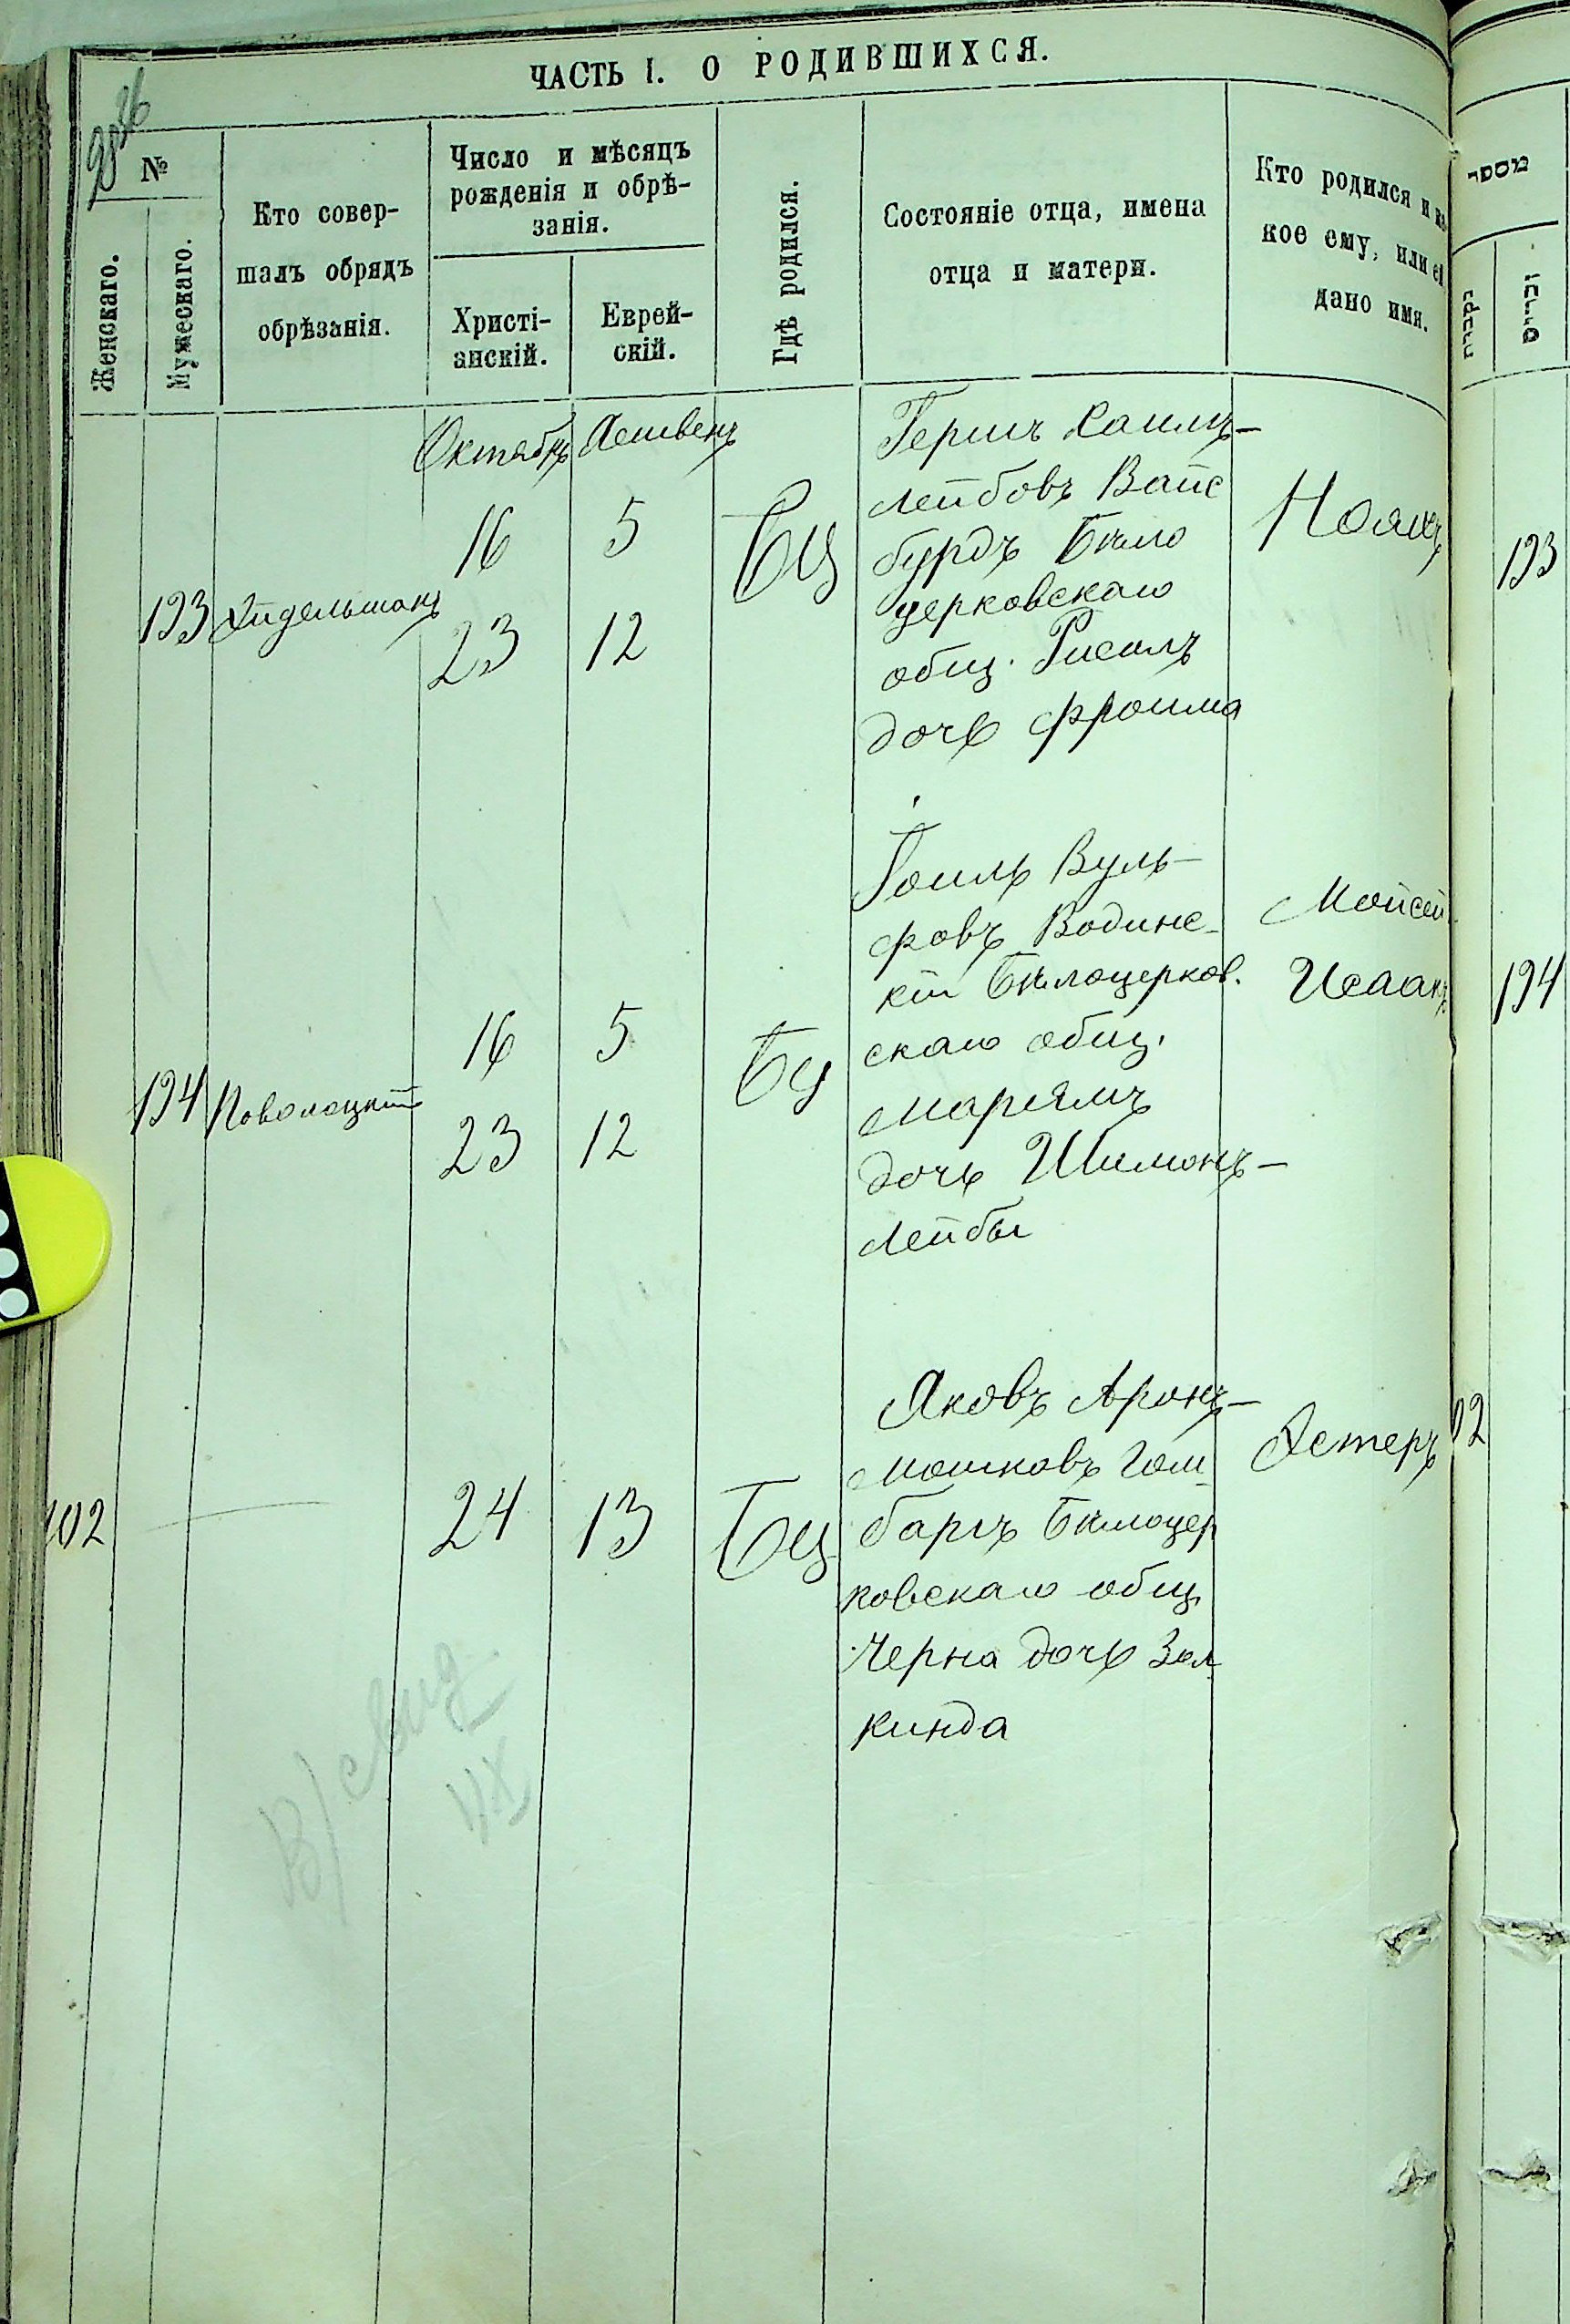 ЧАСТЬ I. О РОДИВШИХСЯ.
№
Женскаго.
Мужескаго.
Кто совер-
шалъ обрядъ
обрѣзанія.
Число и мѣсяцъ
рожденія и обрѣ-
занія.
Христі-
анскій.
Еврей-
скій.
Гдѣ родился.
Состояніе отца, имена
отца и матери.
Кто родился и ка
кое ему, или ей
дано имя.
Октябрь Хешвенъ
193 Эйдельманъ
16 5
23 12
БЦ
Гершъ Хаимъ-
Лейбовъ Вайс
бурдъ Бѣло
церковскаго
общ. Рисилъ
дочь Фроима
Нояхъ
193
194 Поволоцкій
16 5
23 12
БЦ
Іоиль Вуль-
фовъ Водинс-
кій Бѣлоцерков.
скаго общ.
Маріямъ
дочь Шимонъ-
Лейбы
Мойсей
Исаакъ
194
102
24 13
БЦ
Яковъ Аронъ-
Мошковъ Гом
бargъ Бѣлоцер
ковскаго общ
Черна дочь Зел
кинда
Эстеръ
02